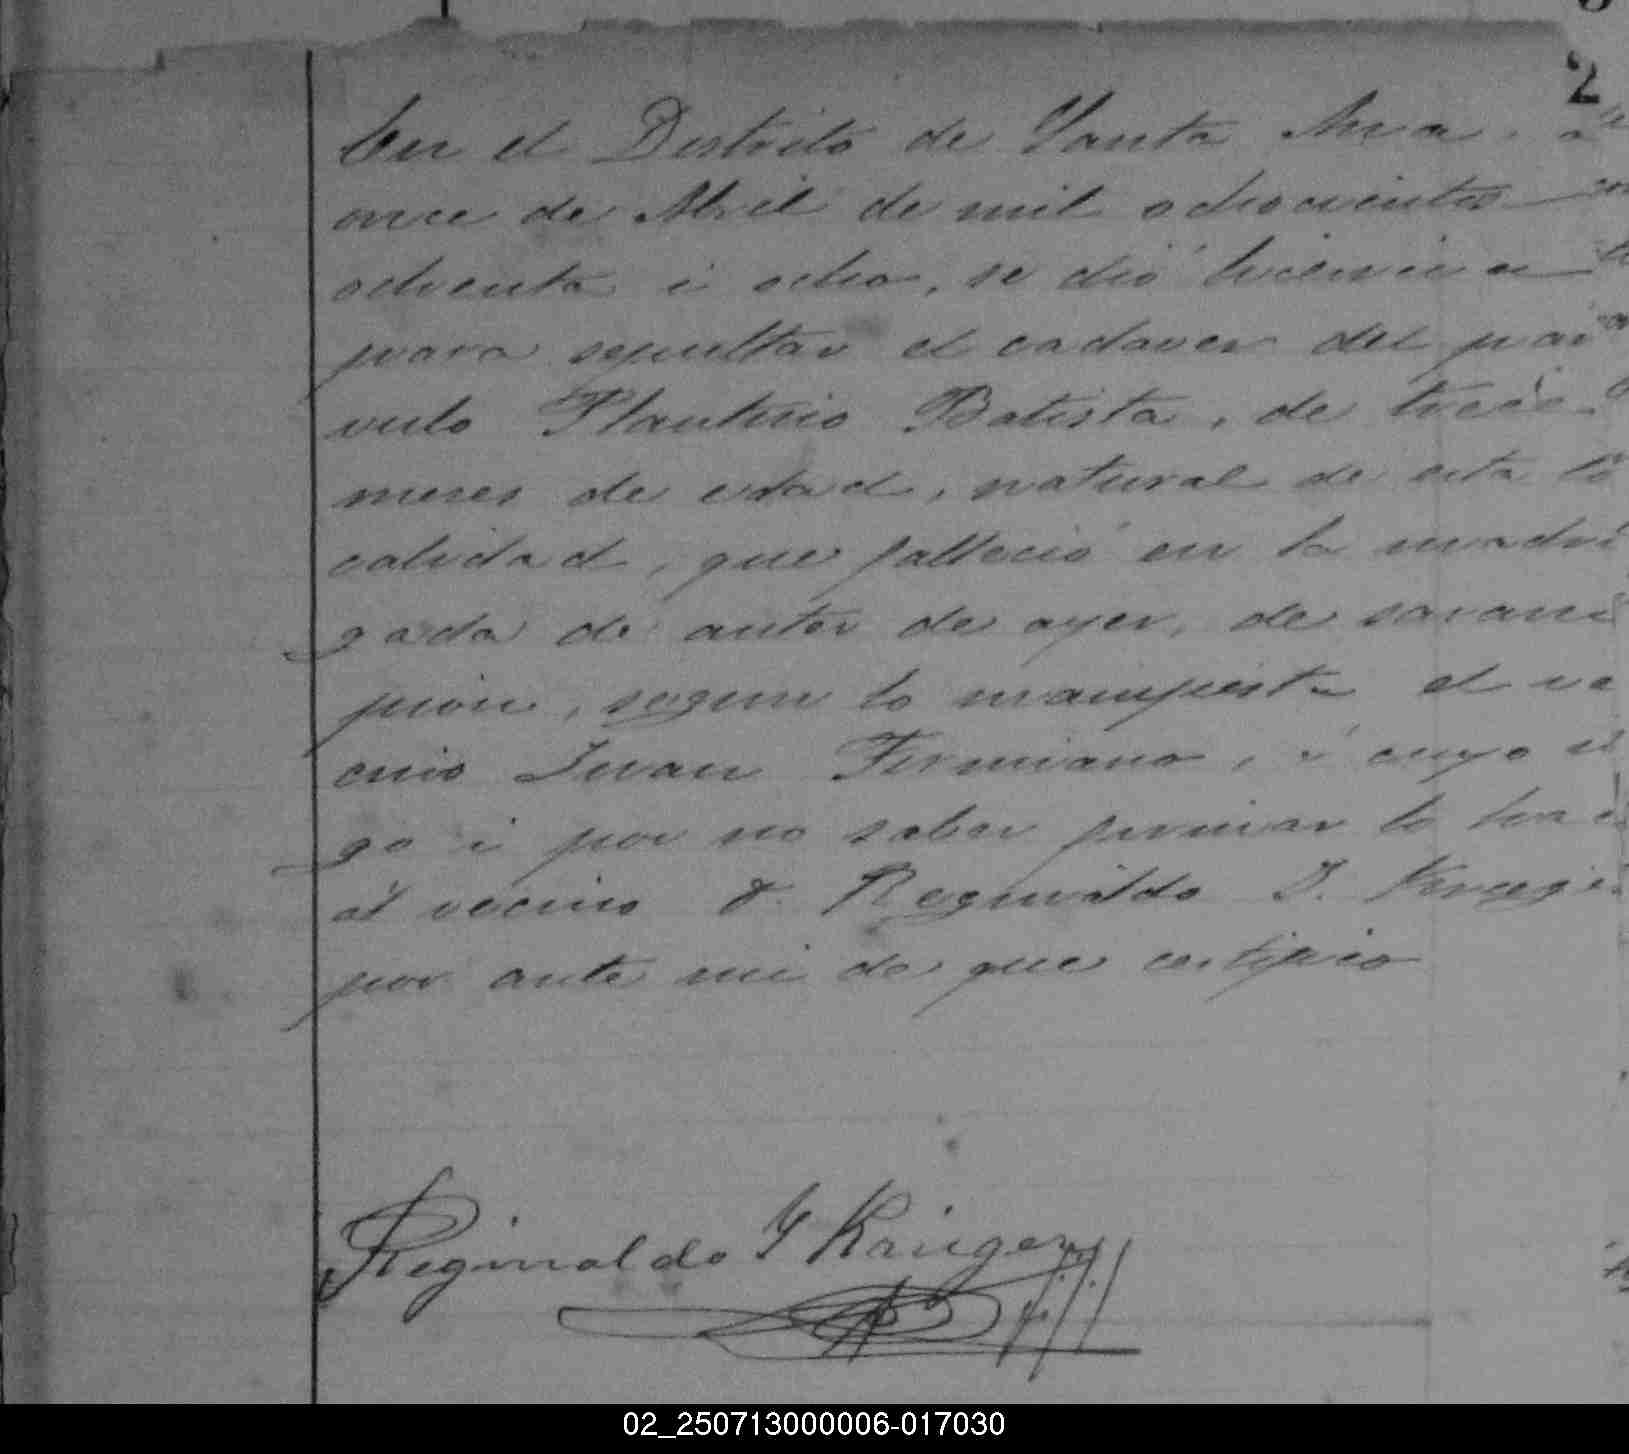 2
En el Distrito de Santa Ana, a
once de Abril de mil ochocientos
ochenta i ocho, se dió licencia
para sepultar el cadaver del par
vulo Plauterio Batista, de trece
meses de edad, natural de esta lo
calidad, que falleció en la madru
gada de antes de ayer, de saram
pion, segun lo manifiesta el ve
cino Juan Firmiano, á cuyo rue
go i por no saber firmar lo hace
el vecino d. Reginaldo J. Kruger
por ante mi de que certifico
Reginaldo J Krüger
02_250713000006-017030